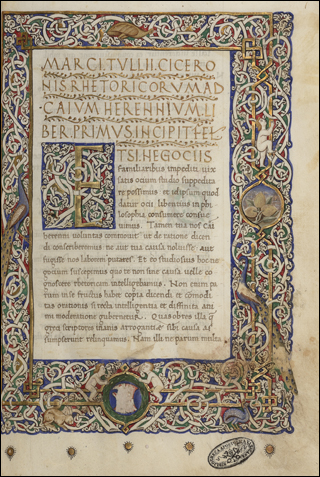 MARCI TULLII CICERO
NIS RHETORICORVM AD
CAIVM HERENNIVM LI
BER PRIMVS INCIPIT FEL
ETSI NEGOCIIS
familiaribus impediti vix
satis ocium studio suppedita
re possimus et id ipsum quod
datur ocii libentius in phi
losophia consumere consue
uimus Tamen tua nos Cai
herenni uoluntas commouit ut de ratione dicen
di conscriberemus ne aut tua causa noluisse aut
fugisse nos laborem putares Et eo studiosius hoc ne
gotium suscepimus quod te non sine causa uelle co
gnoscere rhetoricam intelligebamus Non enim pa
rum in se fructus habet copia dicendi et commodi
tas orationis si recta intelligentia et diffinita ani
mi moderatione gubernetur Quas ob res illa que
greci scriptores inanis arrogantie sibi causa as
sumpserunt relinquimus Nam illi ne parum multa